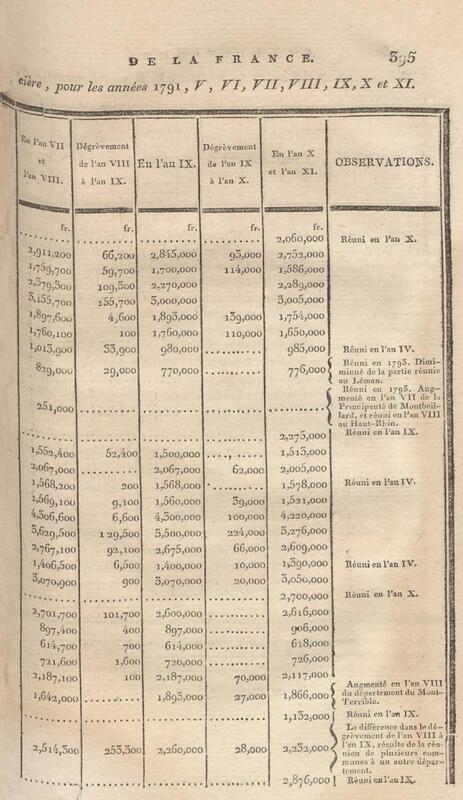 DE LA FRANCE. 395
cière, pour les années 1791, V, VI, VII, VIII, IX, X et XI.
En l'an VII et l'an VIII. | Dégrèvement de l'an VIII à l'an IX. | En l'an IX. | Dégrèvement de l'an IX à l'an X. | En l'an X et l'an XI. | OBSERVATIONS.
fr. fr. fr. fr. fr.
.......... .......... .......... .......... 2,060,000 Réuni en l'an X.
2,911,200 66,200 2,845,000 93,000 2,752,000
1,759,700 59,700 1,700,000 114,000 1,586,000
2,379,300 109,300 2,270,000 .......... 2,289,000
3,155,700 155,700 3,000,000 .......... 3,005,000
1,897,600 4,600 1,893,000 139,000 1,754,000
1,760,100 100 1,760,000 110,000 1,650,000
1,013,900 33,900 980,000 .......... 985,000 Réuni en l'an IV.
829,000 29,000 770,000 .......... 776,000 Réuni en 1793. Dimi-
minué de la partie réunie
au Léman.
251,000 .......... .......... .......... .......... Réuni en 1793. Aug-
menté en l'an VII de la
Principauté de Montbeil-
lard, et réuni en l'an VIII
au Haut-Rhin.
.......... .......... .......... .......... 2,275,000 Réuni en l'an IX.
1,552,400 52,400 1,500,000 .......... 1,513,000
2,067,000 .......... 2,067,000 62,000 2,005,000
1,568,200 200 1,568,000 .......... 1,578,000 Réuni en l'an IV.
1,569,100 9,100 1,560,000 39,000 1,521,000
4,306,600 6,600 4,300,000 100,000 4,220,000
3,629,500 129,500 3,500,000 224,000 3,276,000
2,767,100 92,100 2,675,000 66,000 2,609,000
1,406,500 6,500 1,400,000 10,000 1,390,000 Réuni en l'an IV.
3,070,900 900 3,070,000 20,000 3,050,000
.......... .......... .......... .......... 2,700,000 Réuni en l'an X.
2,701,700 101,700 2,600,000 .......... 2,616,000
897,400 400 897,000 .......... 906,000
614,700 700 614,000 .......... 628,000
721,600 1,600 720,000 .......... 726,000
2,187,100 100 2,187,000 70,000 2,117,000
1,642,000 .......... 1,893,000 27,000 1,866,000 Augmenté en l'an VIII
du département du Mont-
Terrible.
.......... .......... .......... .......... 1,132,000 Réuni en l'an IX.
2,514,300 253,300 2,260,000 28,000 2,232,000 La différence dans le dé-
grèvement de l'an VIII à
l'an IX, résulte de la réu-
nion de plusieurs com-
munes à un autre dépar-
tement.
.......... .......... .......... .......... 2,876,000 Réuni en l'an IX.